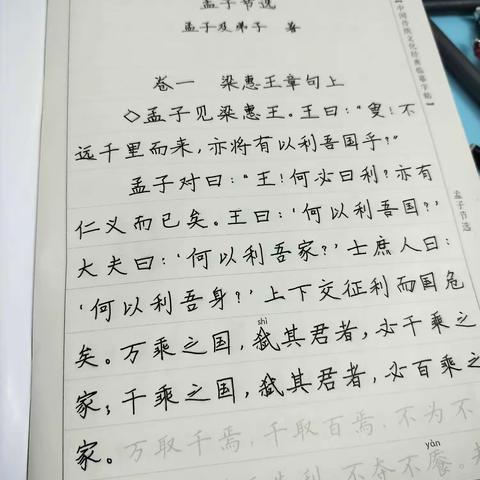 孟子节选
孟子及弟子 著
卷一 梁惠王章句上
◇孟子见梁惠王。王曰:“叟!不
远千里而来,亦将有以利吾国乎?”
孟子对曰:“王!何必曰利?亦有
仁义而已矣。王曰:‘何以利吾国?’
大夫曰:‘何以利吾家?’士庶人曰:
‘何以利吾身?’上下交征利而国危
shì
矣。万乘之国,弑其君者,必千乘之
家;千乘之国,弑其君者,必百乘之
家。万取千焉,千取百焉,不为不
yàn
利,不夺不餍。
【中国传统文化经典临摹字帖】
孟子节选